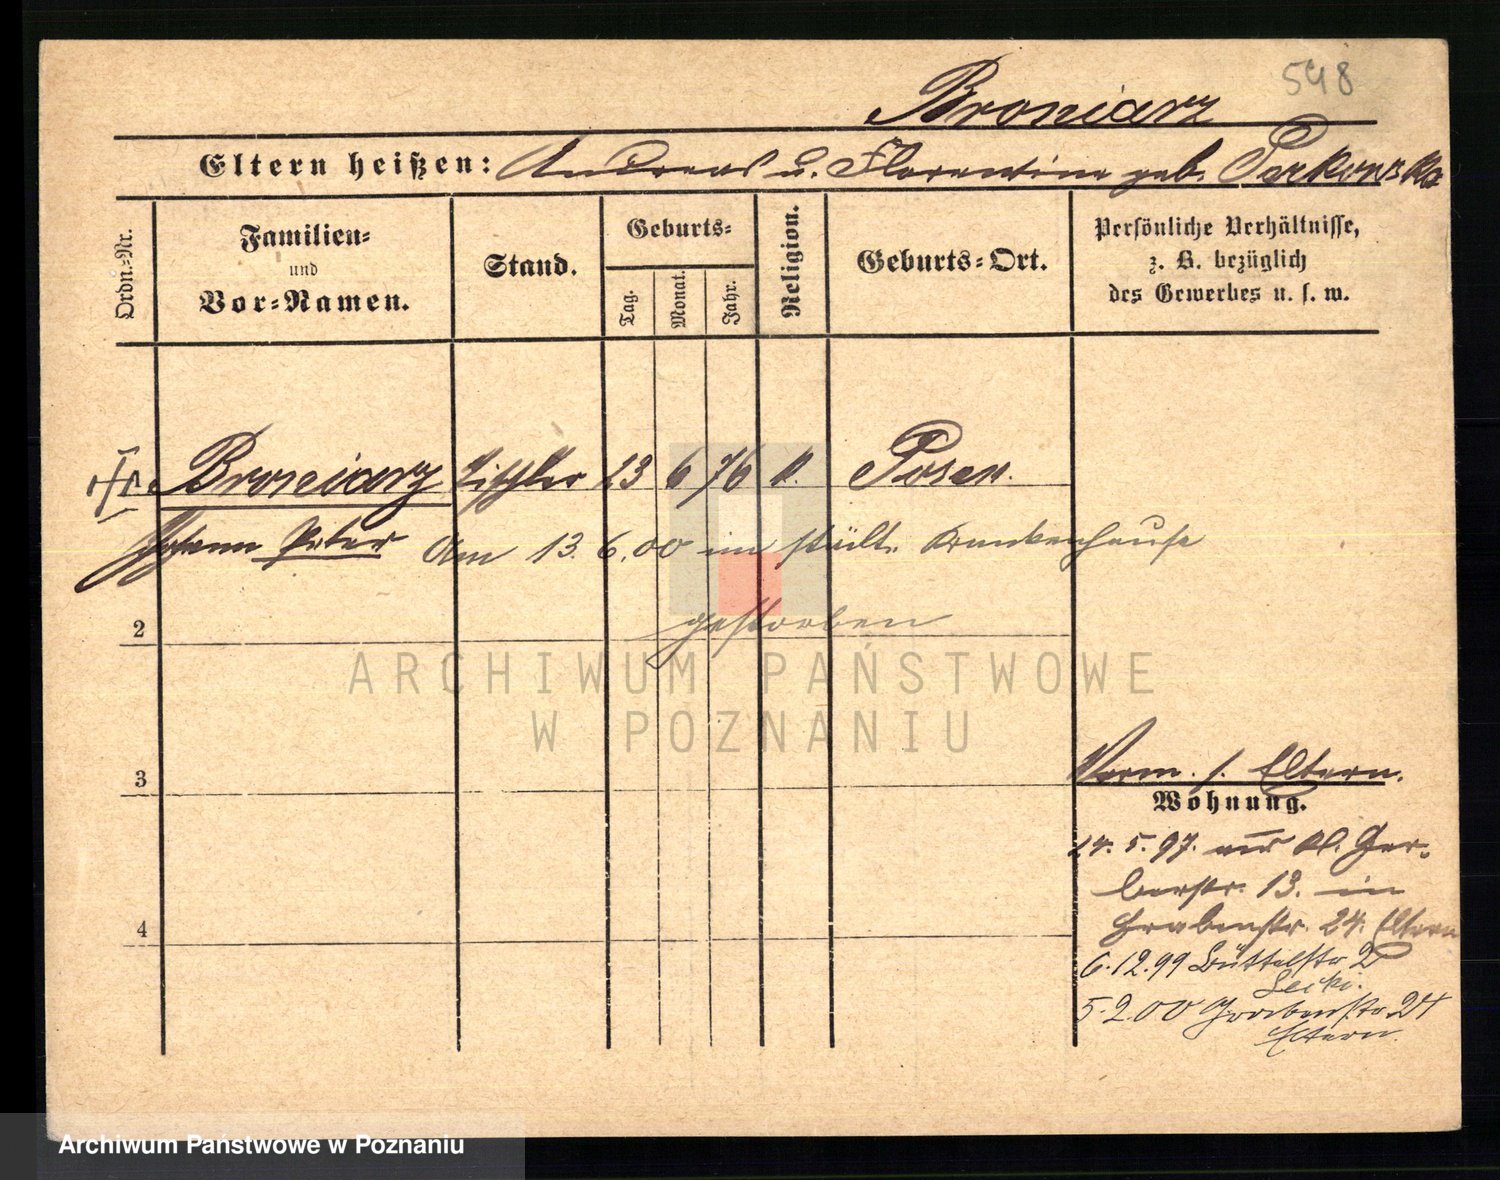 548
Broniarz
Eltern heißen: Andreas u. Florentine geb. Perkowska
Ordn.-Nr.
Familien-
und
Vor-Namen.
Stand.
Geburts-
Tag.
Monat.
Jahr.
Religion.
Geburts-Ort.
Persönliche Verhältnisse,
z. B. bezüglich
des Gewerbes u. s. w.
Broniarz Tischler 23 6 76 k. Posen.
Johann Peter Am 13. 6. 00 im städt. Krankenhause
gestorben
2
3
4
Vorm. s. Eltern.
Wohnung.
24. 5. 97. aus Kl. Ger-
berstr. 13. in
Grabenstr. 24. Eltern
6.12.99 Büttelstr 2
5.2.00 Grabenstr 24
Eltern.
ARCHIWUM PAŃSTWOWE
W POZNANIU
Archiwum Państwowe w Poznaniu